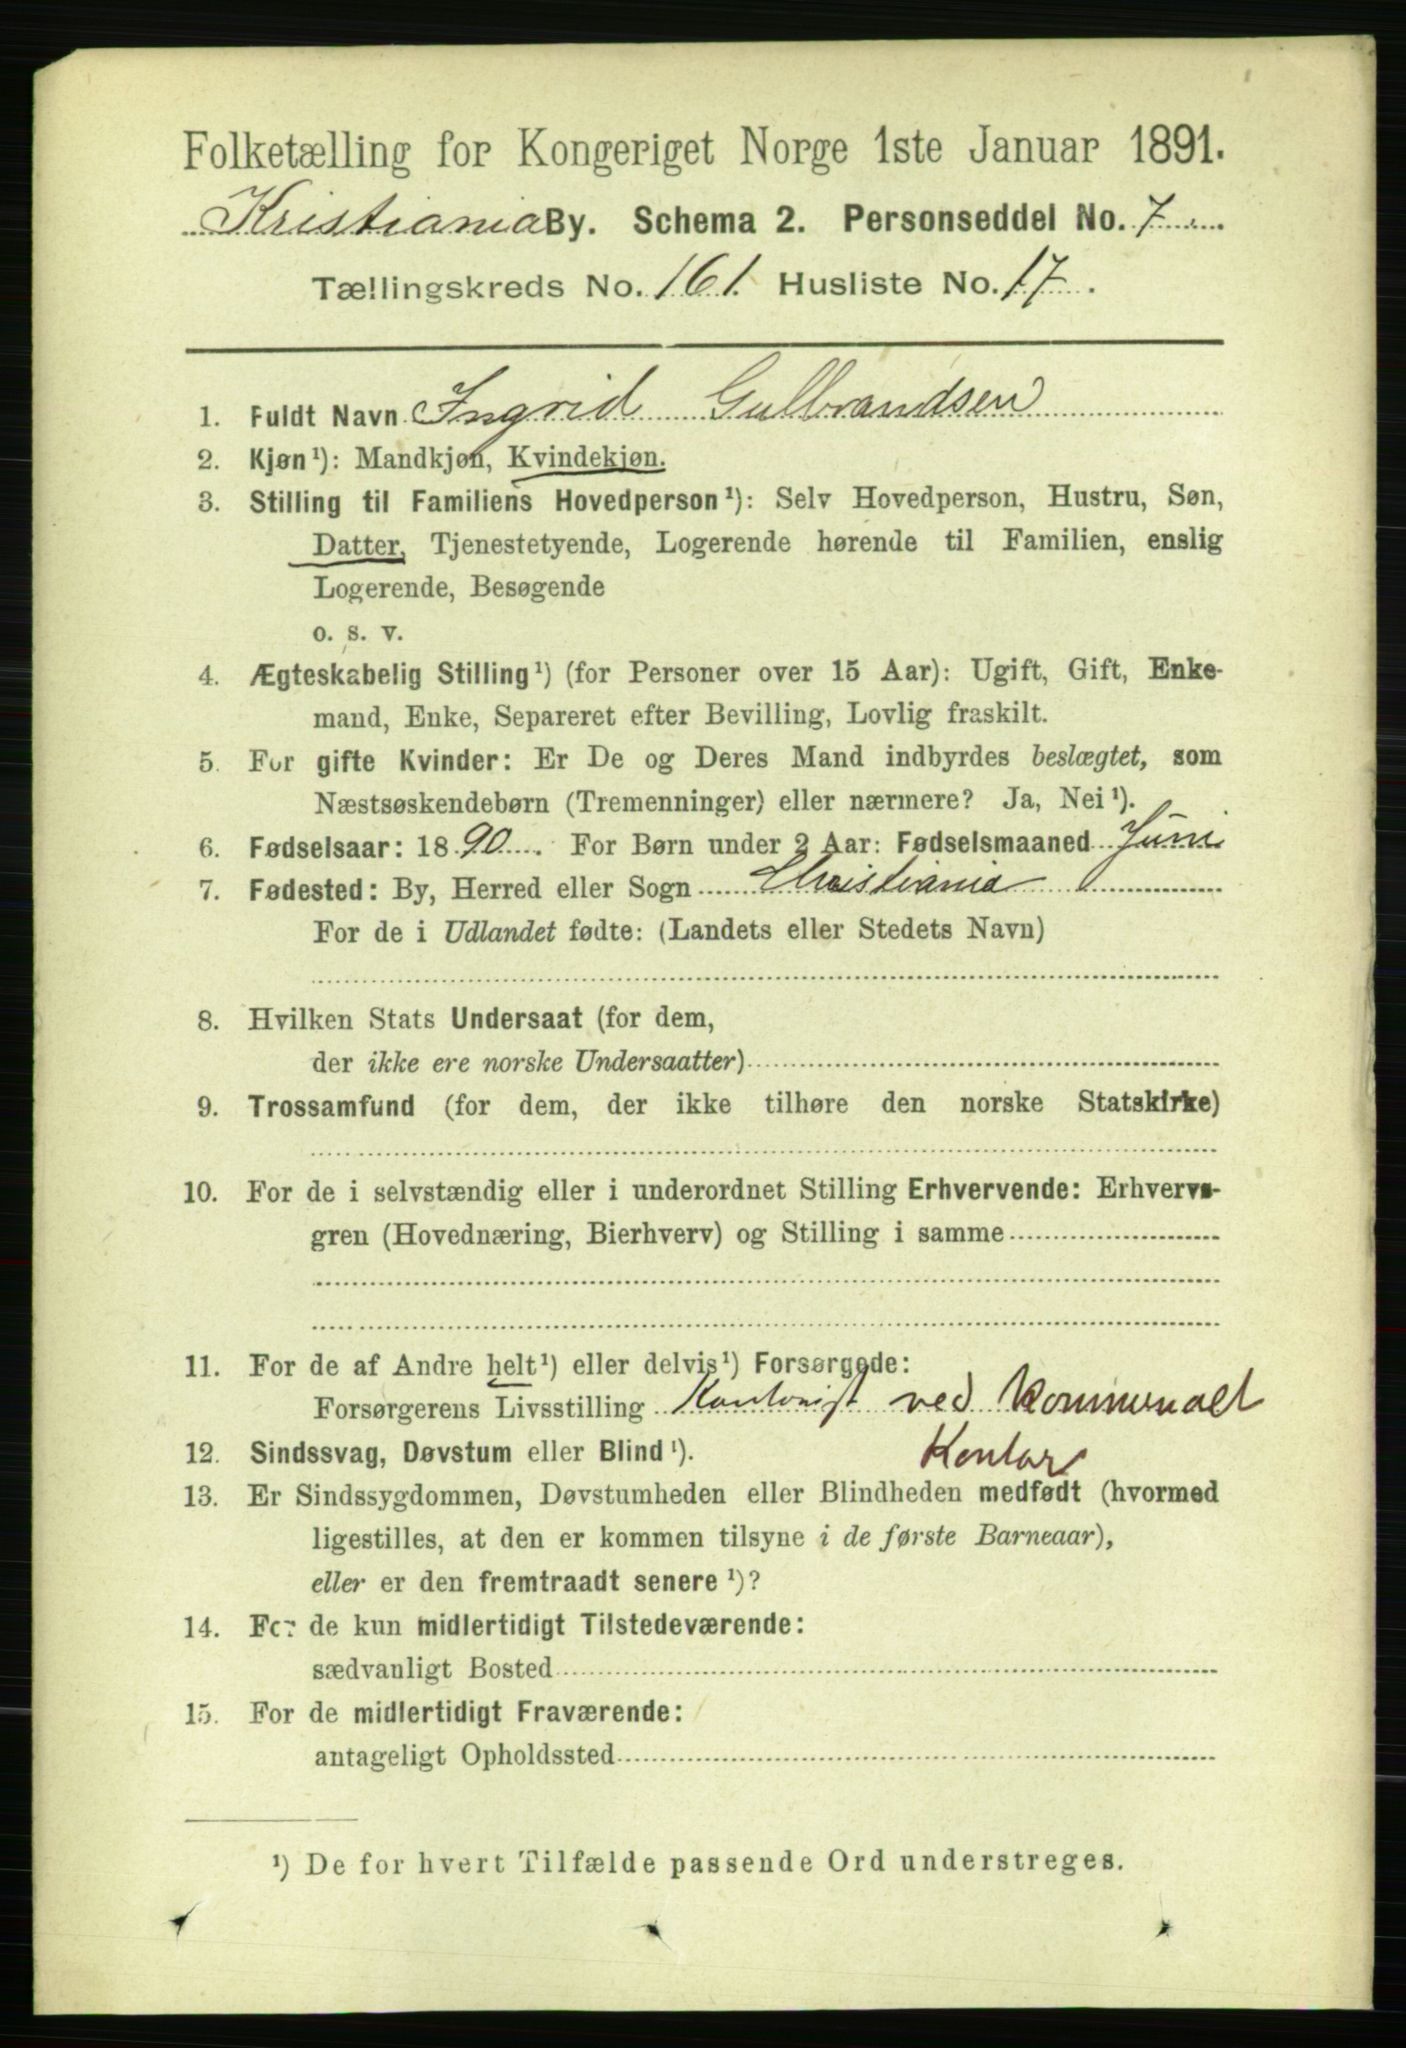 Folketælling for Kongeriget Norge 1ste Januar 1891.
Kristiania By. Schema 2. Personseddel No. 7
Tællingskreds No. 161 Husliste No. 17.
1. Fuldt Navn Ingrid Gulbrandsen
2. Kjøn¹): Mandkjøn, Kvindekjøn.
3. Stilling til Familiens Hovedperson¹): Selv Hovedperson, Hustru, Søn,
Datter, Tjenestetyende, Logerende hørende til Familien, enslig
Logerende, Besøgende
o. s. v.
4. Ægteskabelig Stilling¹) (for Personer over 15 Aar): Ugift, Gift, Enke-
mand, Enke, Separeret efter Bevilling, Lovlig fraskilt.
5. For gifte Kvinder: Er De og Deres Mand indbyrdes beslægtet, som
Næstsøskendebørn (Tremenninger) eller nærmere? Ja, Nei¹).
6. Fødselsaar: 1890. For Børn under 2 Aar: Fødselsmaaned Juni
7. Fødested: By, Herred eller Sogn Christiania
For de i Udlandet fødte: (Landets eller Stedets Navn)
8. Hvilken Stats Undersaat (for dem,
der ikke ere norske Undersaatter)
9. Trossamfund (for dem, der ikke tilhøre den norske Statskirke)
10. For de i selvstændig eller i underordnet Stilling Erhvervende: Erhvervs-
gren (Hovednæring, Bierhverv) og Stilling i samme
11. For de af Andre helt¹) eller delvis¹) Forsørgede:
Forsørgerens Livsstilling Kontorist ved Kommunalt
Kontor
12. Sindssvag, Døvstum eller Blind¹).
13. Er Sindssygdommen, Døvstumheden eller Blindheden medfødt (hvormed
ligestilles, at den er kommen tilsyne i de første Barneaar),
eller er den fremtraadt senere¹)?
14. For de kun midlertidigt Tilstedeværende:
sædvanligt Bosted
15. For de midlertidigt Fraværende:
antageligt Opholdssted
¹) De for hvert Tilfælde passende Ord understreges.